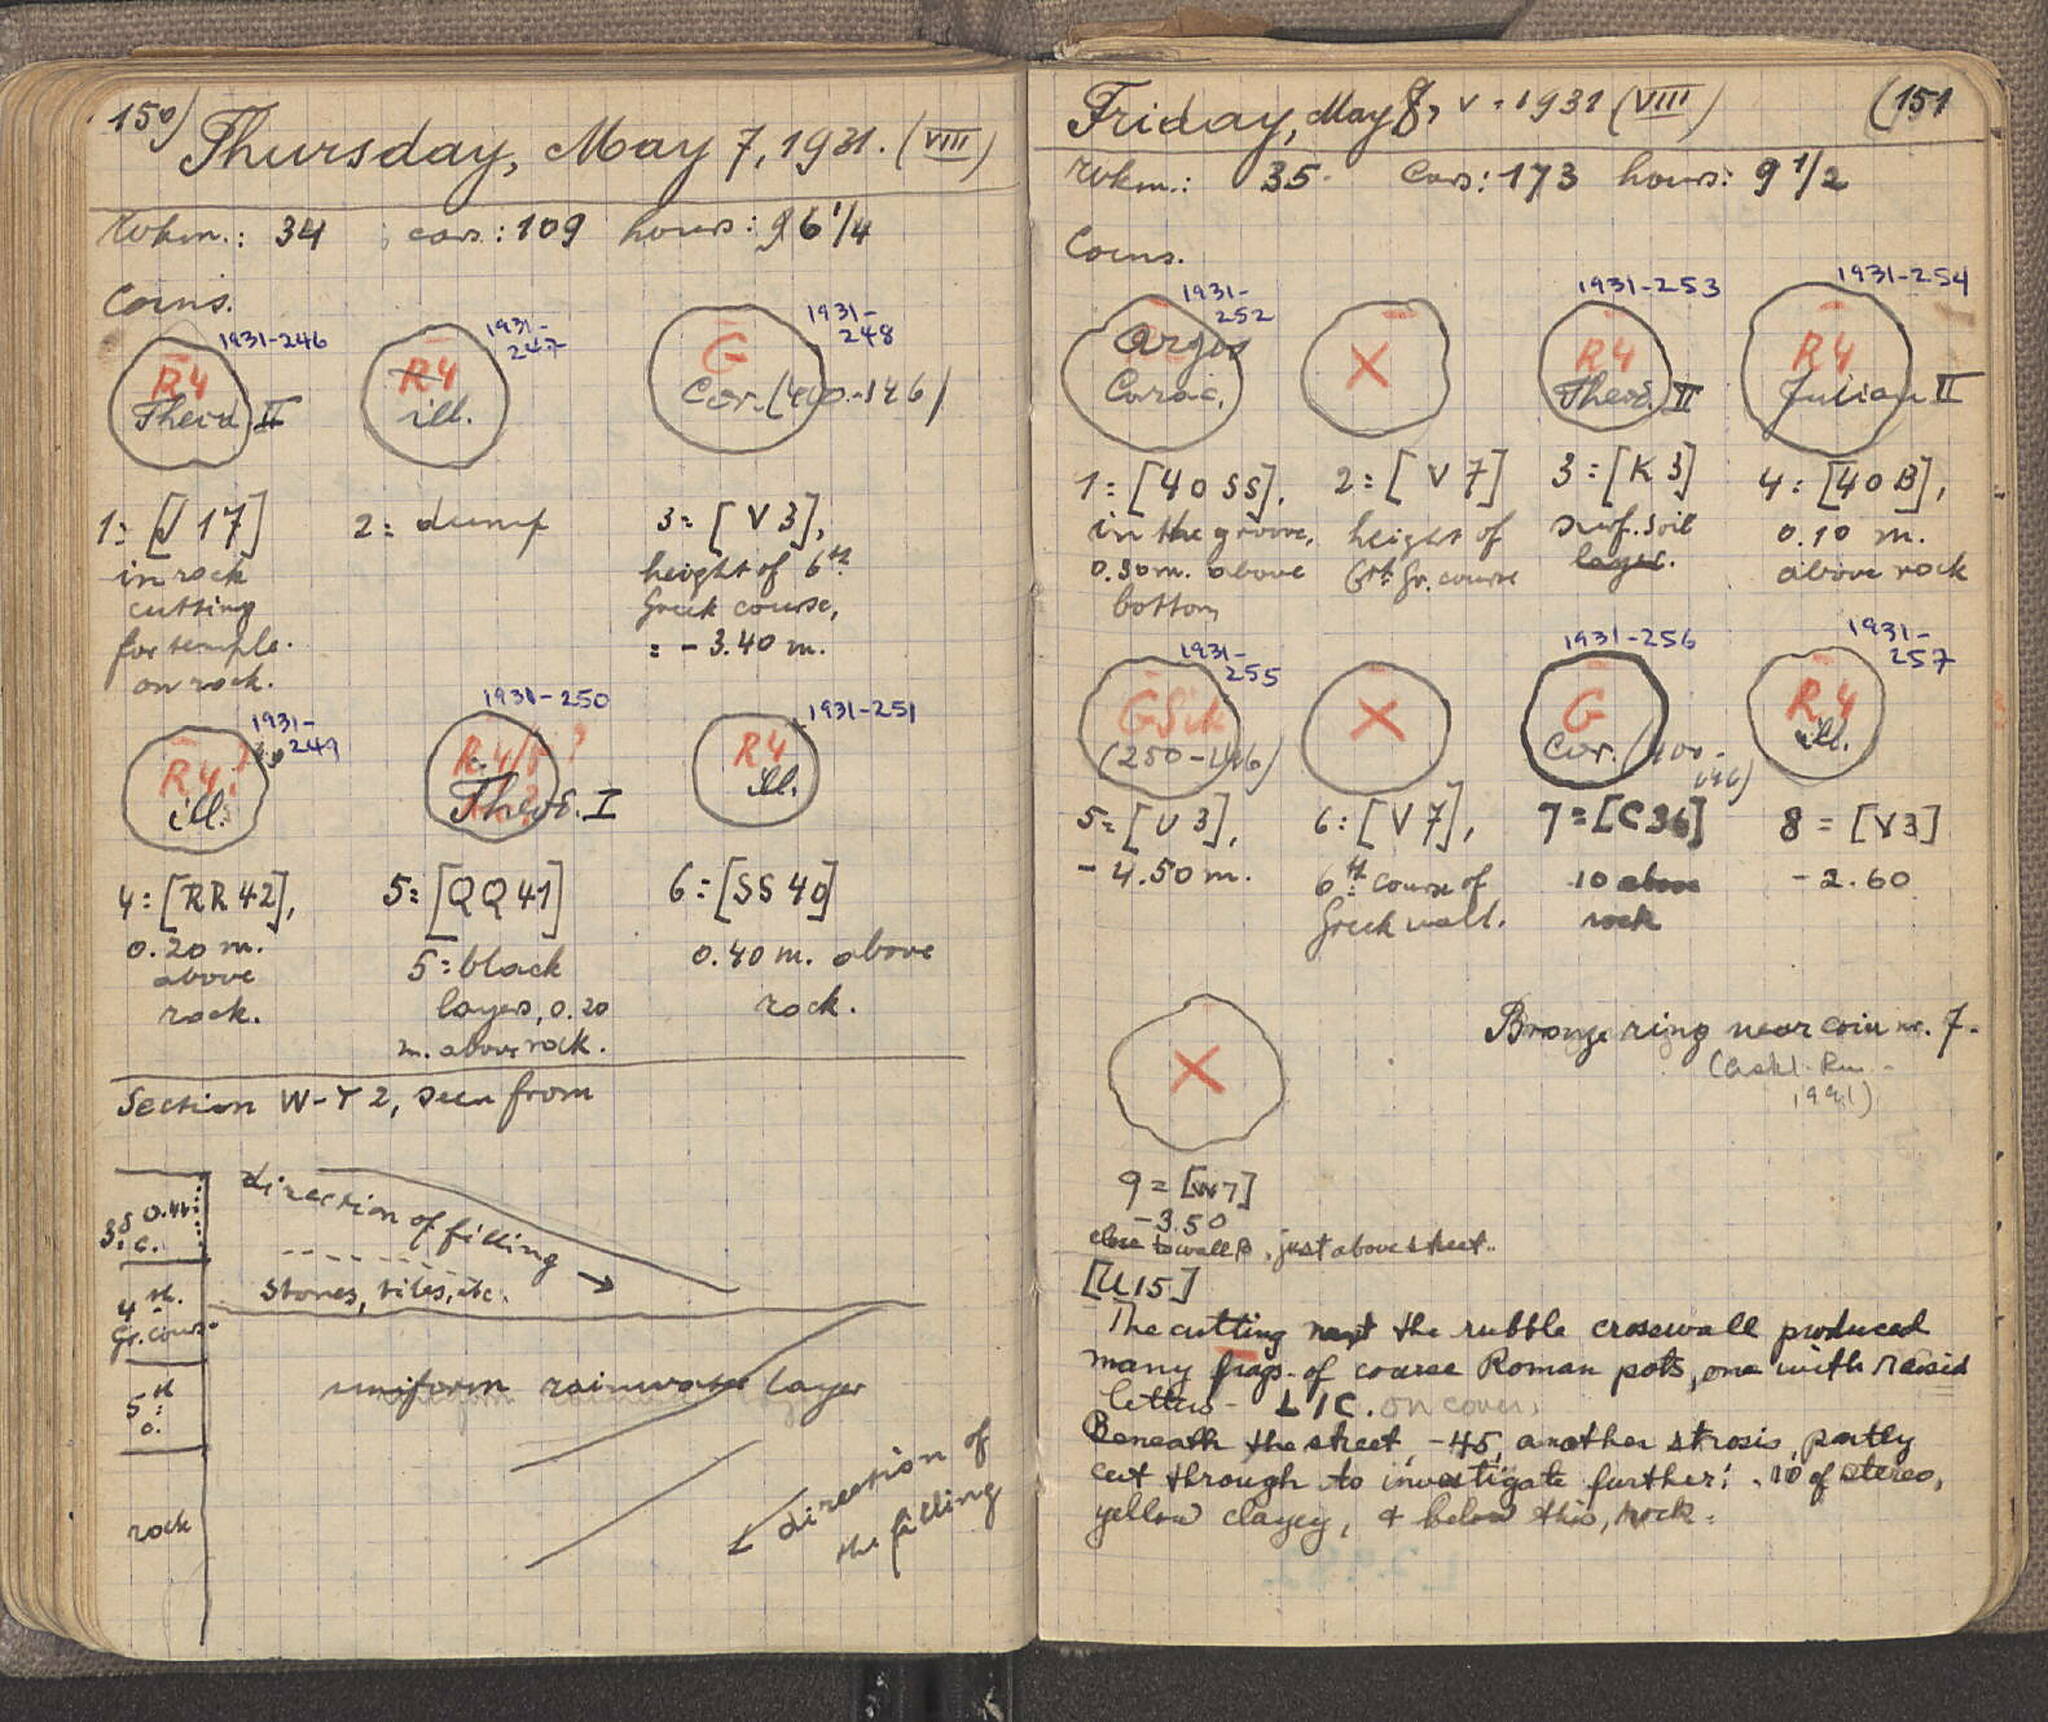 150)
Thursday, May 7, 1931. (VIII)
Wkm.: 34 ; cars.: 109 hours: 6 1/4
Coins.
1931-246
R4
Theod. II
1931-
247
R4
ill.
1931-
248
G
Cor. (400-146)
1: [J 17]
in rock
cutting
for temple.
on rock.
2: dump
3= [V3],
height of 6th
Greek course,
= - 3.40 m.
1931-
249
R4?
ill.
1931-250
R4/5?
Theod. I
1931-251
R4
ill.
4: [RR 42],
0.20 m.
above
rock.
5= [QQ 41]
5: black
layers, 0.20
m. above rock.
6: [SS 40]
0.40 m. above
rock.
Section W-Y 2, seen from
direction of filling
stones, tiles, etc.
4th.
Gr. cour.
5th
rock
uniform rainwater layer
direction of
the filling
(151
Friday, May 8, V. 1931 (VIII)
Wkm.: 35. Cars: 173 hours: 9 1/2
Coins.
1931-
252
Argos
Carac.
X
1931-253
R4
Theod. II
1931-254
R4
Julian II
1: [40 SS].
in the groove,
0.30m. above
bottom
2: [V 7]
height of
6th Gr. course
3 = [K 3]
surf. soil
layer.
4: [40 B],
0.10 m.
above rock
1931-
255
G Sik
(250-146)
X
1931-256
G
Cor. (400-
146)
1931-
257
R4
ill.
5= [U 3],
- 4.50 m.
6: [V 7],
6th course of
Greek wall.
7 = [C 36]
.10 above
rock
8 = [V3]
- 2.60
X
Bronze ring near coin nr. 7.
9 = [W7]
- 3.50
close to wall B, just above street.
[U15]
The cutting next the rubble crosswall produced
many frags. of coarse Roman pots, one with raised
letters - LIC. on cover.
Beneath the street, -45, another strosis, partly
cut through to investigate further: .10 of stereo,
yellow clayey, & below this, rock.